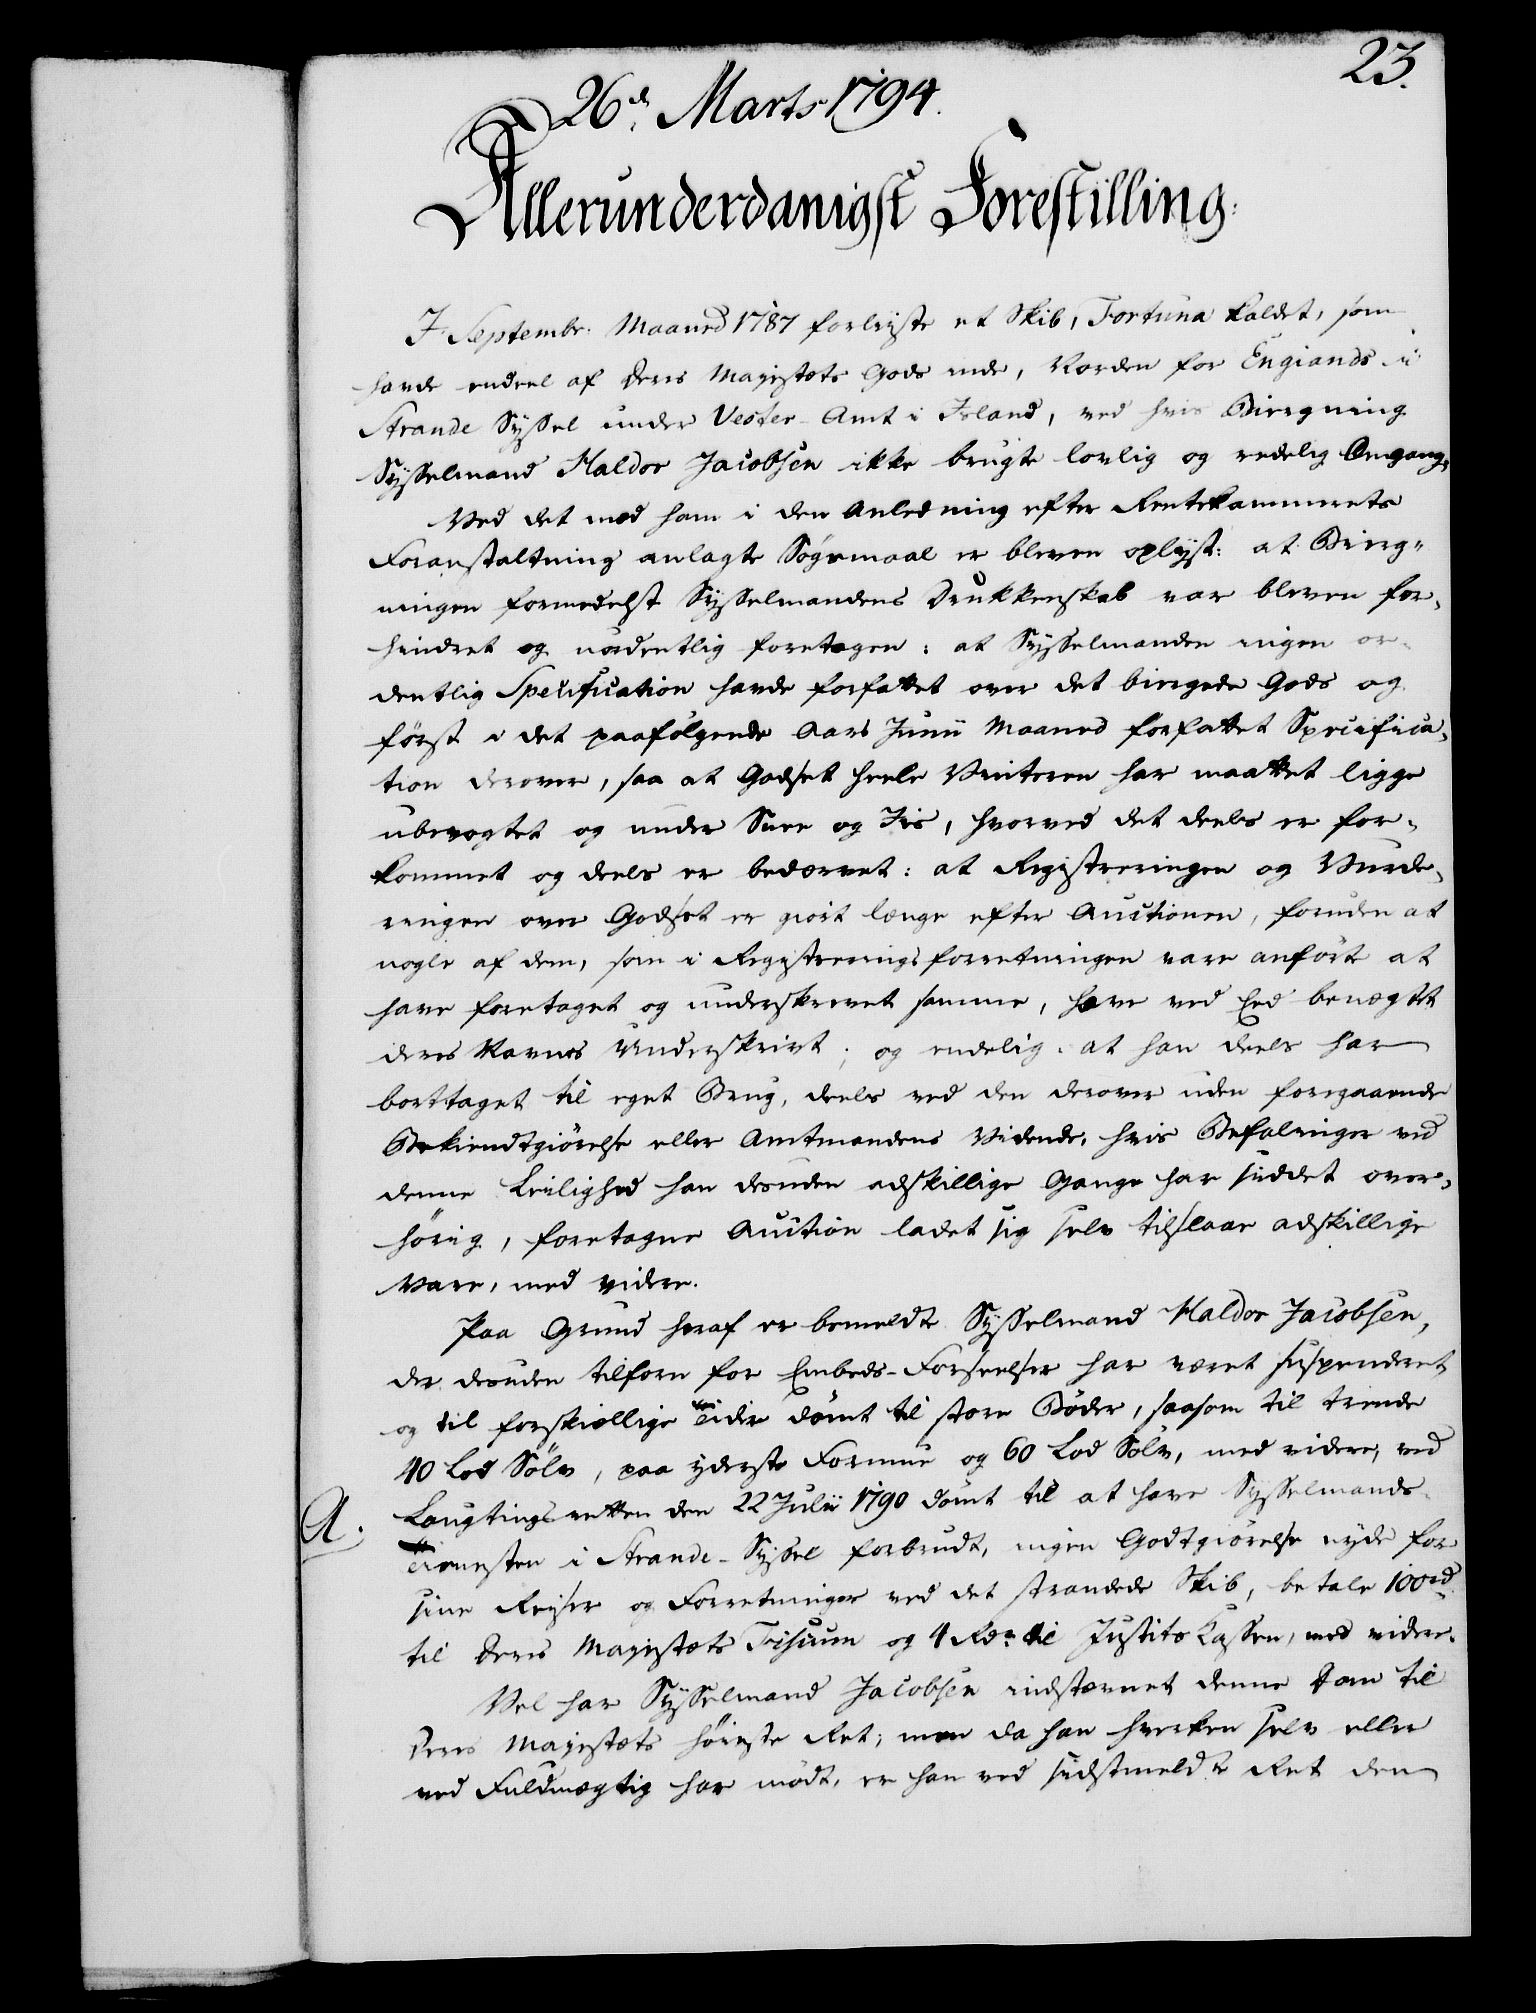 23.
26d. Marts 1794.
Allerunderdanigst Forestilling.
I Septembr. Maaned 1787 forliiste et Skib, Fortuna kaldet, som
havde endeel af Deres Majestæts Gods inde, Norden for Engiands i
Strande Syssel under Vester-Amt i Island, ved hvis Biergning
Sysselmand Haldor Jacobsen ikke brugte lovlig og redelig Omgang.
Ved det mod ham i den Anledning efter Rentekammerets
Foranstaltning anlagte Søgsmaal er bleven oplyst: at Bierg-
ningen formedelst Sysselmandens Drukkenskab var bleven for-
hindret og uordentlig foretagen: at Sysselmanden ingen or-
dentlig Specification havde forfattet over det biergede Gods og
først i det paafølgende Aars Junii Maaned forfattet Specifica-
tion derover, saa at Godset heele Vinteren har maattet ligge
ubevogtet og under Snee og Iis, hvorved det deels er for-
kommet og deels er bedærvet: at Registreringen og Vurde-
ringen over Godset er giort længe efter Auctionen, foruden at
nogle af dem, som i Registreringsforretningen vare anført at
have foretaget og underskrevet samme, have ved Eed benægtet
deres Navnes Underskrivt; og endelig: at han deels har
borttaget til eget Brug, deels ved den derover uden foregaaende
Bekiendtgiørelse eller Amtmandens Vidende, hvis Befalinger ved
denne Leilighed han desuden adskillige Gange har siddet over-
hørig, foretagne Auction ladet sig selv tilslaae adskillige
Vare, med videre.
Paa Grund heraf er bemeldte Sysselmand Haldor Jacobsen,
der desuden tilforn for Embeds-Forseelser har været suspenderet
og til forskiællige Tider dømt til store Bøder, saasom til trende
40 Lod Sølv, paa yderste Formue og 60 Lod Sølv, med videre, ved
A. Laugtingsretten den 22 Julii 1790 dømt til at have Sysselmands-
Tienesten i Strande-Syssel forbrudt, ingen Godtgiørelse nyde for
sine Reiser og Forretninger ved det strandede Skib, betale 100rd
til Deres Majestæts Fiscum og 4 Rdr til Justits Kassen, med videre.
Vel har Sysselmand Jacobsen indstævnet denne Dom til
Deres Majestæts høieste Ret; men da han hverken selv eller
ved Fuldmægtig har mødt, er han ved sidstmeldte Ret den